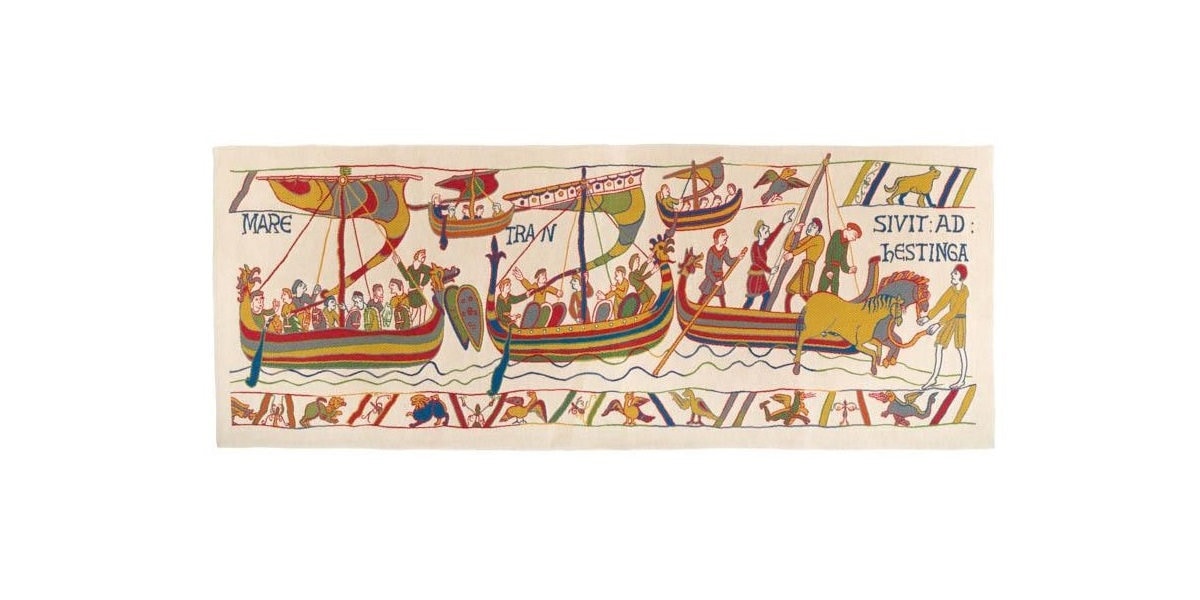 MARE
TRAN
SIVIT : AD :
hESTINGA